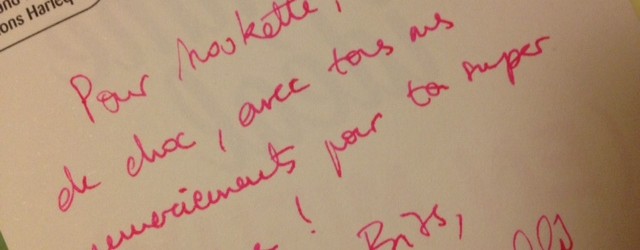 ons Harleq
Pour Noukette,
de choc, avec tous mes
remerciements pour ta super
!
Bises,